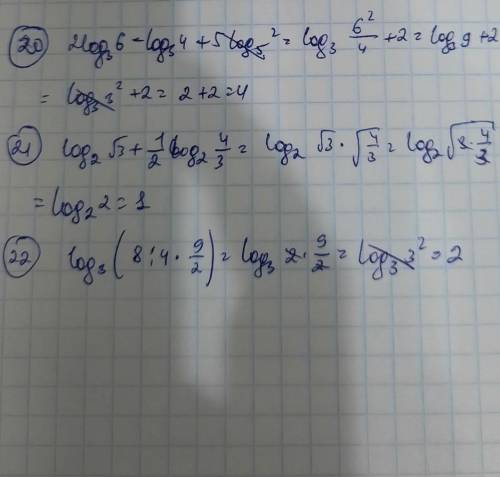 20 2log₃6 - log₃4 + 5^(log₅2) = log₃ 6²/4 + 2 = log₃9 + 2
= log₃3² + 2 = 2 + 2 = 4
21 log₂√3 + 1/2 log₂ 4/3 = log₂ √3 · √(4/3) = log₂ √(3 · 4/3)
= log₂2 = 1
22 log₃(8 : 4 · 9/2) = log₃ 2 · 9/2 = log₃3² = 2